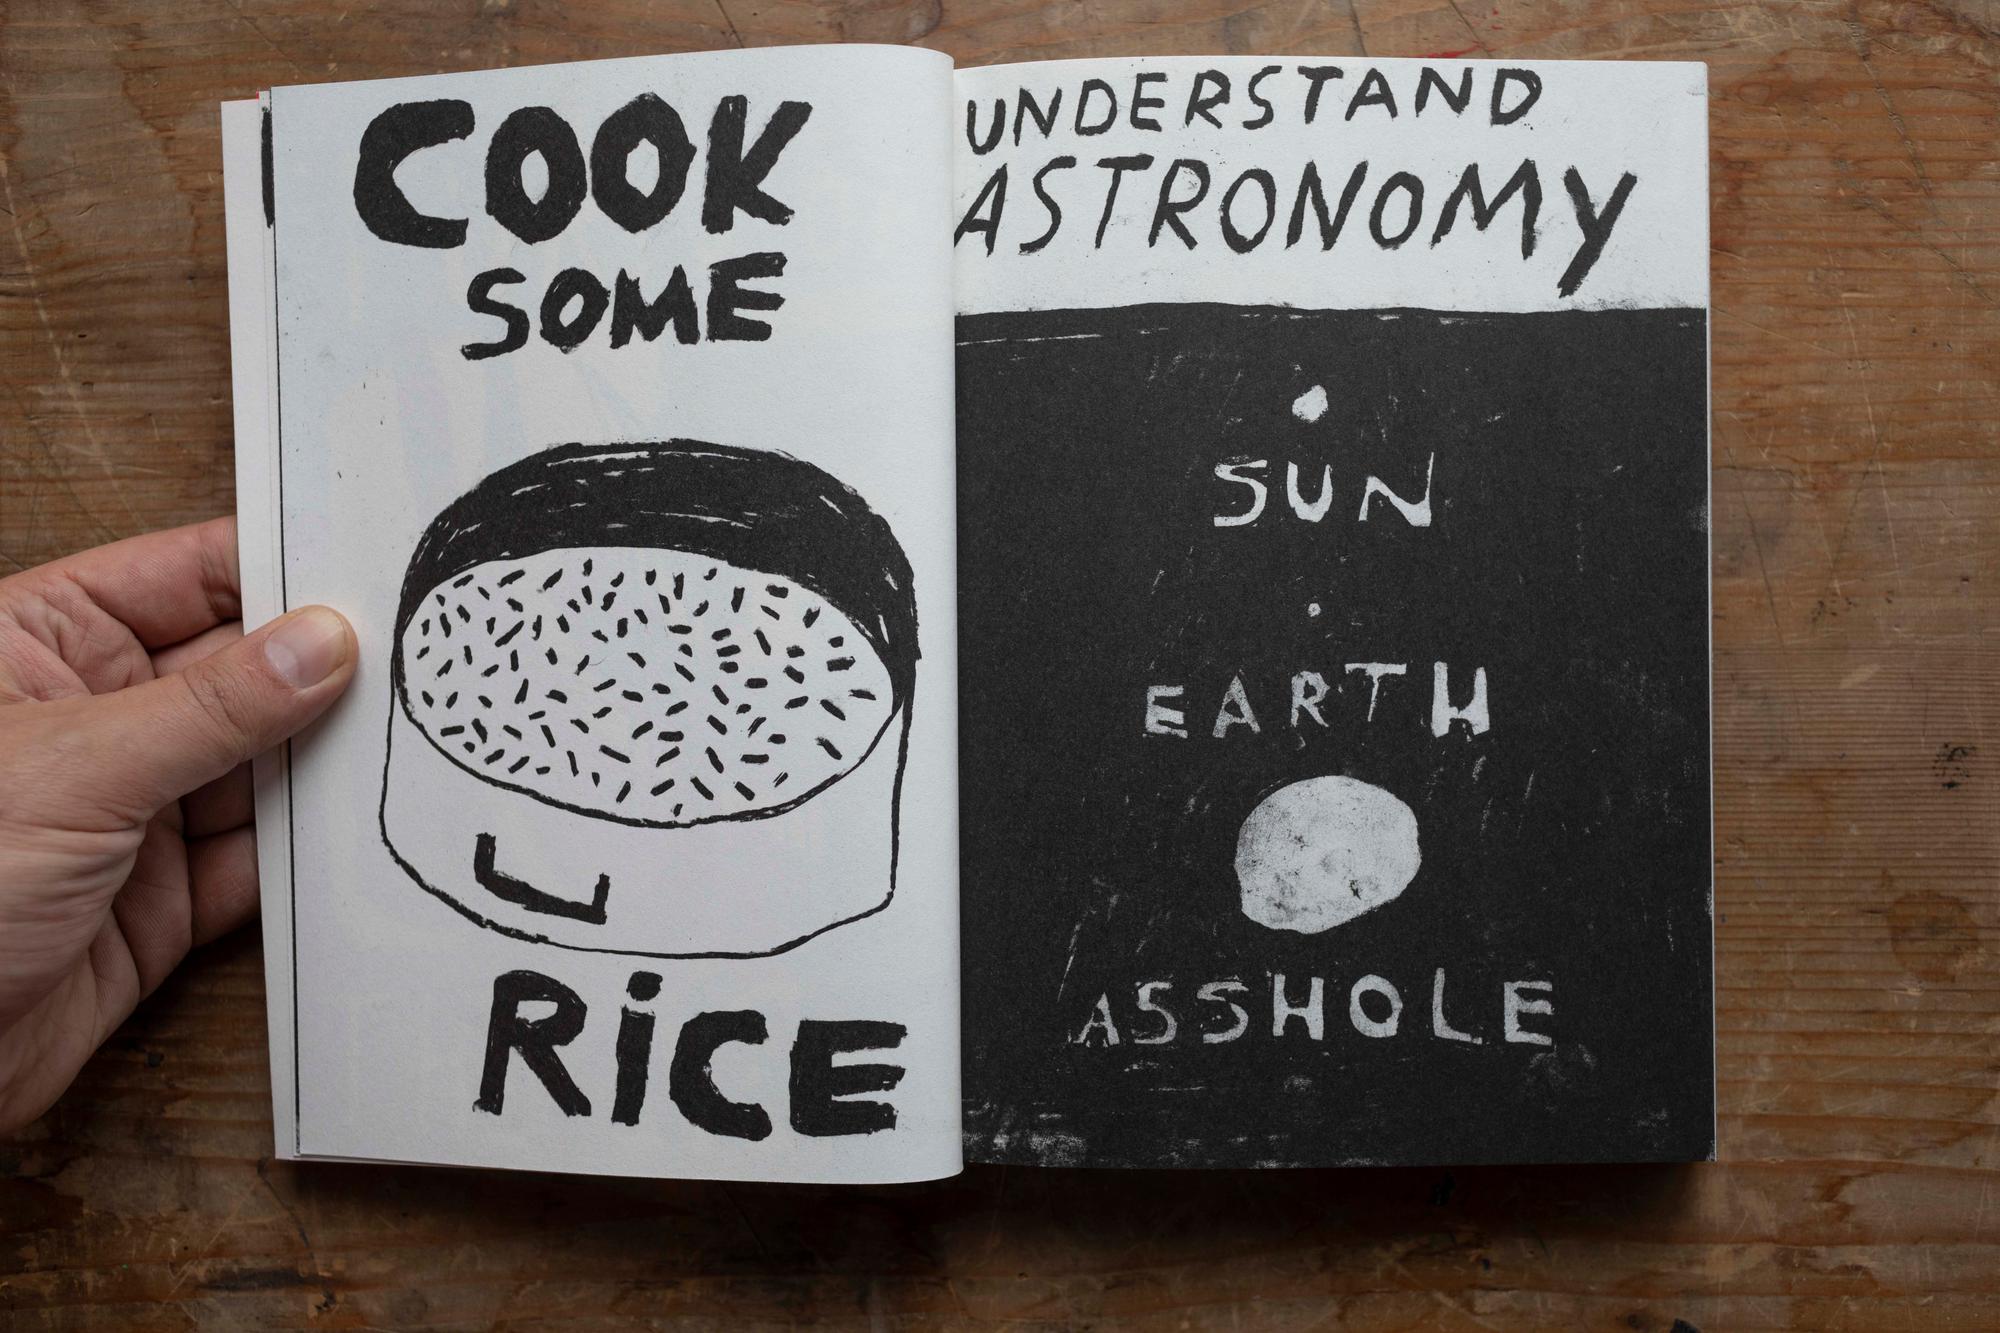 COOK
SOME
RiCE
UNDERSTAND
ASTRONOMY
SUN
EARTH
ASSHOLE